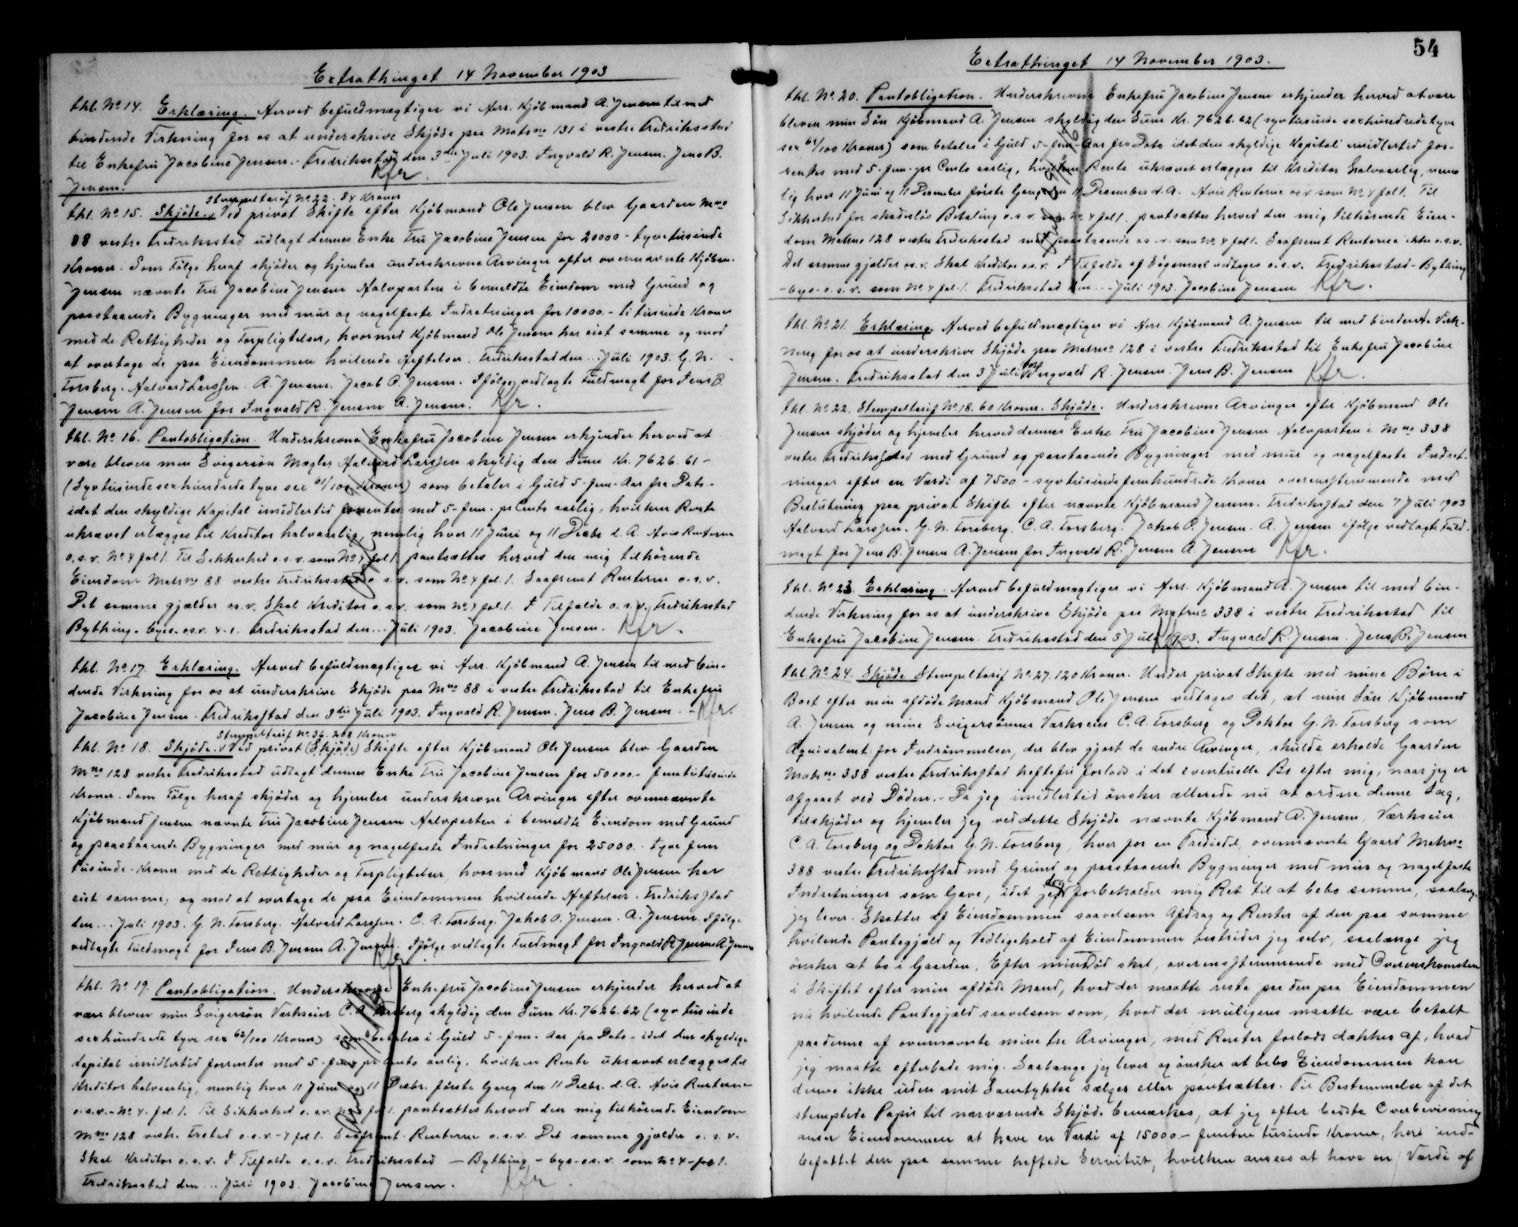 Extrathinget 14 November 1903
thl. No 14. Erklæring. Herved befuldmægtiger vi Hrr. Kjöbmand A. Jensen til med
bindende Virkning for os at underskrive Skjöde paa Matrno 131 i vestre Fredriksstad
til Enkefru Jacobine Jensen. - Fredriksstad den 3die Juli 1903. Ingvald R. Jensen. Jens B.
Jensen. Kfr.
Stempeltarif No 22. 84 Kroner
thl. No. 15. Skjöde. Ved privat Skifte efter Kjöbmand Ole Jensen blev Gaarden Mno
88 vestre Fredriksstad udlagt dennes Enke Fru Jacobine Jensen for 20000 - tyvetusinde
Kroner. Som Fölge heraf skjöder og hjemler underskrevne Arvinger efter ovennævnte Kjöbm.
Jensen nævnte Fru Jacobine Jensen Halvparten i bemeldte Eiendom med Grund og
paastaaende Bygninger med mur og nagelfaste Indretninger for 10000 - titusinde Kroner
med de Rettigheder og Forpligtelser, hvormed Kjöbmand Ole Jensen har eiet samme og mod
at overtage de paa Eiendommen hvilende Heftelser. Fredriksstad den ... Juli 1903. G. N.
Forsberg. Halvard Larssen. A. Jensen. Jacob O. Jensen. Ifölge vedlagte Fuldmagt for Jens B.
Jensen A. Jensen for Ingvald R. Jensen A. Jensen. Kfr.
thl. No 16. Pantobligation. Underskrevne Enkefru Jacobine Jensen erkjender herved at
være bleven min Svigersön Mægler Halvard Larssen skyldig den Sum Kr. 7626.61 -
(Syvtusindesexhundredetyve sex 61/100 Kroner) som betales i Guld 5 - fem - Aar fra Dato -
idet den skyldige Kapital imidlertid forrentes med 5 - fem - pr Cento aarlig, hvilken Rente
ukrævet erlægges til Kreditor halvaarlig, nemlig hver 11 Juni og 11 Decbr d. A. Avis Renterne
o.s.v. No 4 fol 1. Til Sikkerhed o.s.v. som No 4 fol 1. pantsættes herved den mig tilhörende
Eiendom Matrno 88 vestre Fredriksstad o.s.v. som No 4 fol. 1. Saafremt Renterne o.s.v.
Det samme gjælder o.s.v. Skal Kreditor o.s.v. som No 4 fol 1. I Tilfælde o.s.v. Fredriksstad
Bything. - byes. o.s.v. 4-1. Fredriksstad den ... Juli 1903. Jacobine Jensen. Kfr.
thl. No 17. Erklæring. Herved befuldmægtiger vi Hrr. Kjöbmand A. Jensen til med bin-
dende Virkning for os at underskrive Skjöde paa Mno 88 i vestre Fredriksstad til Enkefru
Jacobine Jensen. Fredriksstad den 3die Juli 1903. Ingvald R. Jensen. Jens B. Jensen. - Kfr.
Stempeltarif No 36. 208 Kroner
thl. No 18. Skjöde. Ved privat (Skjöde) Skifte efter Kjöbmand Ole Jensen blev Gaarden
Mno 128 vestre Fredriksstad udlagt dennes Enke Fru Jacobine Jensen for 50000 - femtitusinde
Kroner. Som Fölge heraf skjöder og hjemler underskrevne Arvinger efter ovennævnte
Kjöbmand Jensen nævnte Fru Jacobine Jensen Halvparten i bemeldte Eiendom med Grund
og paastaaende Bygninger med mur og nagelfaste Indretninger for 25000 - tyve fem
Tusinde - Kroner med de Rettigheder og Forpligtelser, hvormed Kjöbmand Ole Jensen har
eiet samme, og mod at overtage de paa Eiendommen hvilende Heftelser. Fredriksstad
den ... Juli 1903. G. N. Forsberg. Halvard Larssen. C. A. Forsberg. Jakob O. Jensen. A. Jensen. Ifölge
vedlagte Fuldmagt for Jens B. Jensen A. Jensen. Ifölge vedlagte Fuldmagt for Ingvald R. Jensen A. Jensen
Kfr.
thl. No 19. Pantobligation. Underskrevne Enkefru Jacobine Jensen erkjender herved at
være bleven min Svigersön Verkseier C. A. Forsberg skyldig den Sum Kr. 7626.62 (syv tusinde
sexhundrede tyve sex 62/100 Kroner) som betales i Guld 5 - fem - Aar fra Dato - idet den skyldige
Kapital imidlertid forrentes med 5 - fem pr Cento aarlig, hvilken Rente ukrævet erlægges til
Kreditor halvaarlig, nemlig hver 11 Juni og 11 Decbr. förste Gang den 11 Decbr. d. A. Avis Renterne
o.s.v. - No 4. fol 1. Til Sikkerhed o.s.v. No 4 fol 1. pantsættes herved den mig tilhörende Eiendom
Mno 128 vestre Frstad o.s.v. - 4 fol 1. Saafremt Renterne o.s.v. Det samme gjælder o.s.v.
Skal Kreditor o.s.v. I Tilfælde o.s.v. Fredriksstad - Bything - bye - o.s.v. som No 4 - fol 1.
Fredriksstad den ... Juli 1903. Jacobine Jensen. Kfr.
54
Extrathinget 14 November 1903.
thl. No. 20. Pantobligation. Underskrevne Enkefru Jacobine Jensen erkjender herved at være
bleven min Sön Kjöbmand A. Jensen skyldig den Sum Kr. 7626.62 (syvtusinde sexhundredetyve
sex 62/100 Kroner) som betales i Guld 5 - fem - Aar fra Dato idet den skyldige Kapital imidlertid for-
rentes med 5 - fem - pr Cento aarlig, hvilken Rente ukrævet erlægges til Kreditor halvaarlig, nem-
lig hver 11 Juni og 11 December förste Gang den 11 December d. A. Avis Renterne o.s.v. som No 4 fol 1. Til
Sikkerhed for skadeslös Betaling o.s.v. som No 4 fol 1. pantsættes herved den mig tilhörende Eien-
dom Matrno 128 vestre Fredriksstad med paastaaende o.s.v. som No 4 fol 1. Saafremt Renterne ikke o.s.v.
Det samme gjælder o.s.v. Skal Kreditor o.s.v. I Tilfælde af Sögsmaal vedtages o.s.v. Fredriksstad - Bything
- bye - o.s.v. som No 4 fol. 1. Fredriksstad den ... Juli 1903. Jacobine Jensen Kfr.
thl. No 21. Erklæring. Herved befuldmægtiger vi Hrr. Kjöbmand A. Jensen til med bindende Virk-
ning for os at underskrive Skjöde paa Matrno 128 i vestre Fredriksstad til Enkefru Jacobine
Jensen. Fredriksstad den 3 Juli 1903 Ingvald R. Jensen. Jens B. Jensen Kfr.
thl. No 22. Stempeltarif No 18. 60 Kroner. Skjöde. Underskrevne Arvinger efter Kjöbmand Ole
Jensen skjöder og hjemler herved dennes Enke Fru Jacobine Jensen Halvparten i Mno 338
vestre Fredriksstad med Grund og paastaaende Bygninger med mur og nagelfaste Indret-
ninger efter en Værdi af 7500 - syvtusindefemhundrede Kroner overensstemmende med
Beslutning paa privat Skifte efter nævnte Kjöbmand Jensen. Fredriksstad den 7 Juli 1903
Halvard Larssen. G. N. Forsberg. C. A. Forsberg. Jakob O. Jensen. A. Jensen ifölge vedlagte Fuld-
magt for Jens B. Jensen A. Jensen for Ingvald R. Jensen A Jensen Kfr.
thl. No 23 Erklæring. Herved befuldmægtiger vi Hrr. Kjöbmand A. Jensen til med bin-
dende Virkning for os at underskrive Skjöde paa Matrno 338 i vestre Fredriksstad til
Enkefru Jacobine Jensen. Fredriksstad den 3 Juli 1903. Ingvald R. Jensen. Jens B. Jensen
Kfr.
thl No 24. Skjöde Stempeltarif No 27. 120 Kroner. Under privat Skifte med mine Börn i
Boet efter min afdöde Mand Kjöbmand Ole Jensen vedtages det, at min Sön Kjöbmand
A. Jensen og mine Svigersönner Værkseier C. A. Forsberg og Doktor G. N. Forsberg som
Æquivalent for Indrömmelser, der blev gjort de andre Arvinger, skulde erholde Gaarden
Matrno 338 vestre Fredriksstad heftefri forlods i det eventuelle Bo efter mig, naar jeg er
afgaaet ved Döden. - Da jeg imidlertid önsker allerede nu at ordne denne Sag,
tilskjöder og hjemler jeg ved dette Skjöde nævnte Kjöbmand A. Jensen, Værkseier
C. A. Forsberg og Doktor G. N. Forsberg, hver for en Trediedel, ovennævnte Gaard Matrno
388 vestre Fredriksstad med Grund og paastaaende Bygninger med mur og nagelfaste
Indretninger som Gave, idet jeg dog forbeholder mig Ret til at bebo samme, saalænge
jeg lever. Skatter af Eiendommen saavelsom Afdrag og Renter af den paa samme
hvilende Pantegjæld og Vedligehold af Eiendommen bestrider jeg selv, saalænge jeg
önsker at bo i Gaarden. Efter min Död skal, overensstemmende med Overenskomsten
i Skiftet efter min afdöde Mand, hvad der maatte reste paa den paa Eiendommen
nu hvilende Pantegjæld saavelsom som, hvad der muligens maatte være betalt
paa denne af ovennævnte mine tre Arvinger, med Renter forlods dækkes af, hvad
jeg maatte efterlade mig. Saalænge jeg lever og önsker at bebo Eiendommen kan
denne ikke uden mit Samtykke sælges eller pantsættes. Til Bestemmelse af det
stemplede Papir til nærværende Skjöde bemærkes, at jeg efter bedste Overbevisning
anser Eiendommen at have en Værdi af 15000 - femten tusinde Kroner, heri ind-
befattet den paa samme heftede Servitut, hvilken ansees at have en Værdi af